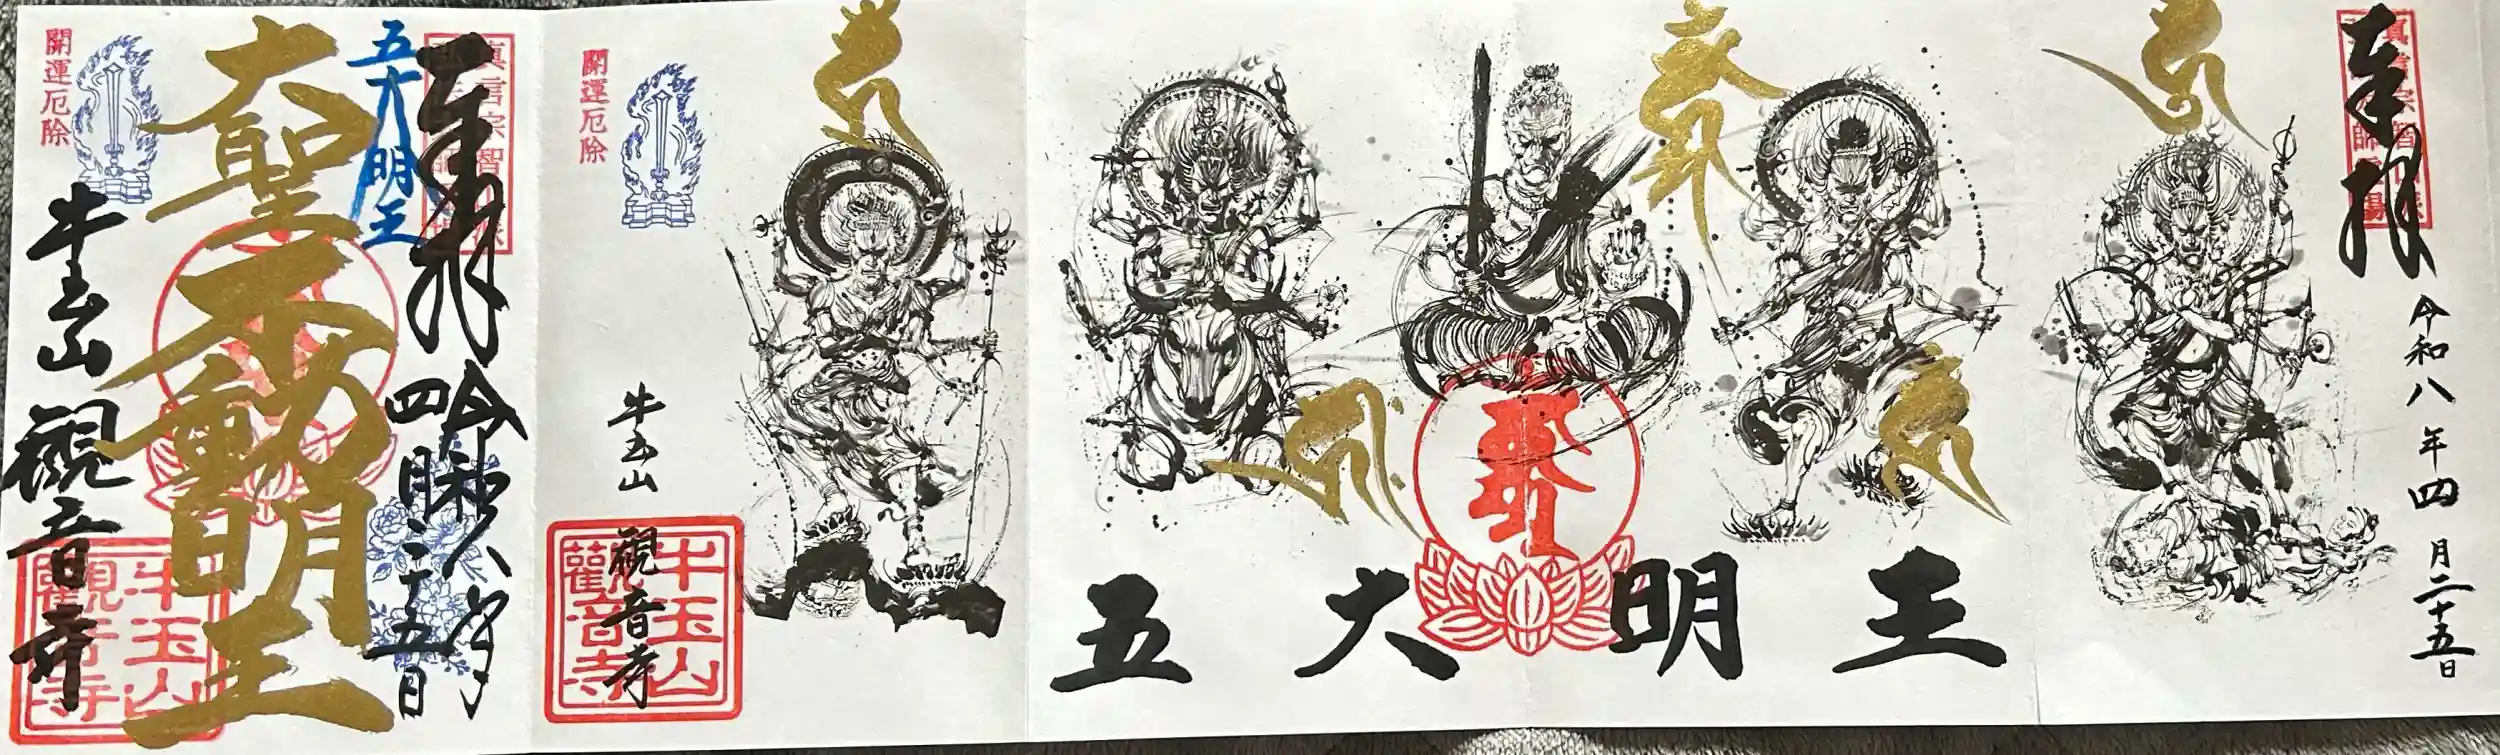 奉拝
令和八年四月二十五日
五大明王
開運厄除
牛玉山
観音寺
牛玉山
観音寺
奉拝
令和八年
四月二十五日
五大明王
大聖不動明王
開運厄除
牛玉山
観音寺
牛玉山
観音寺